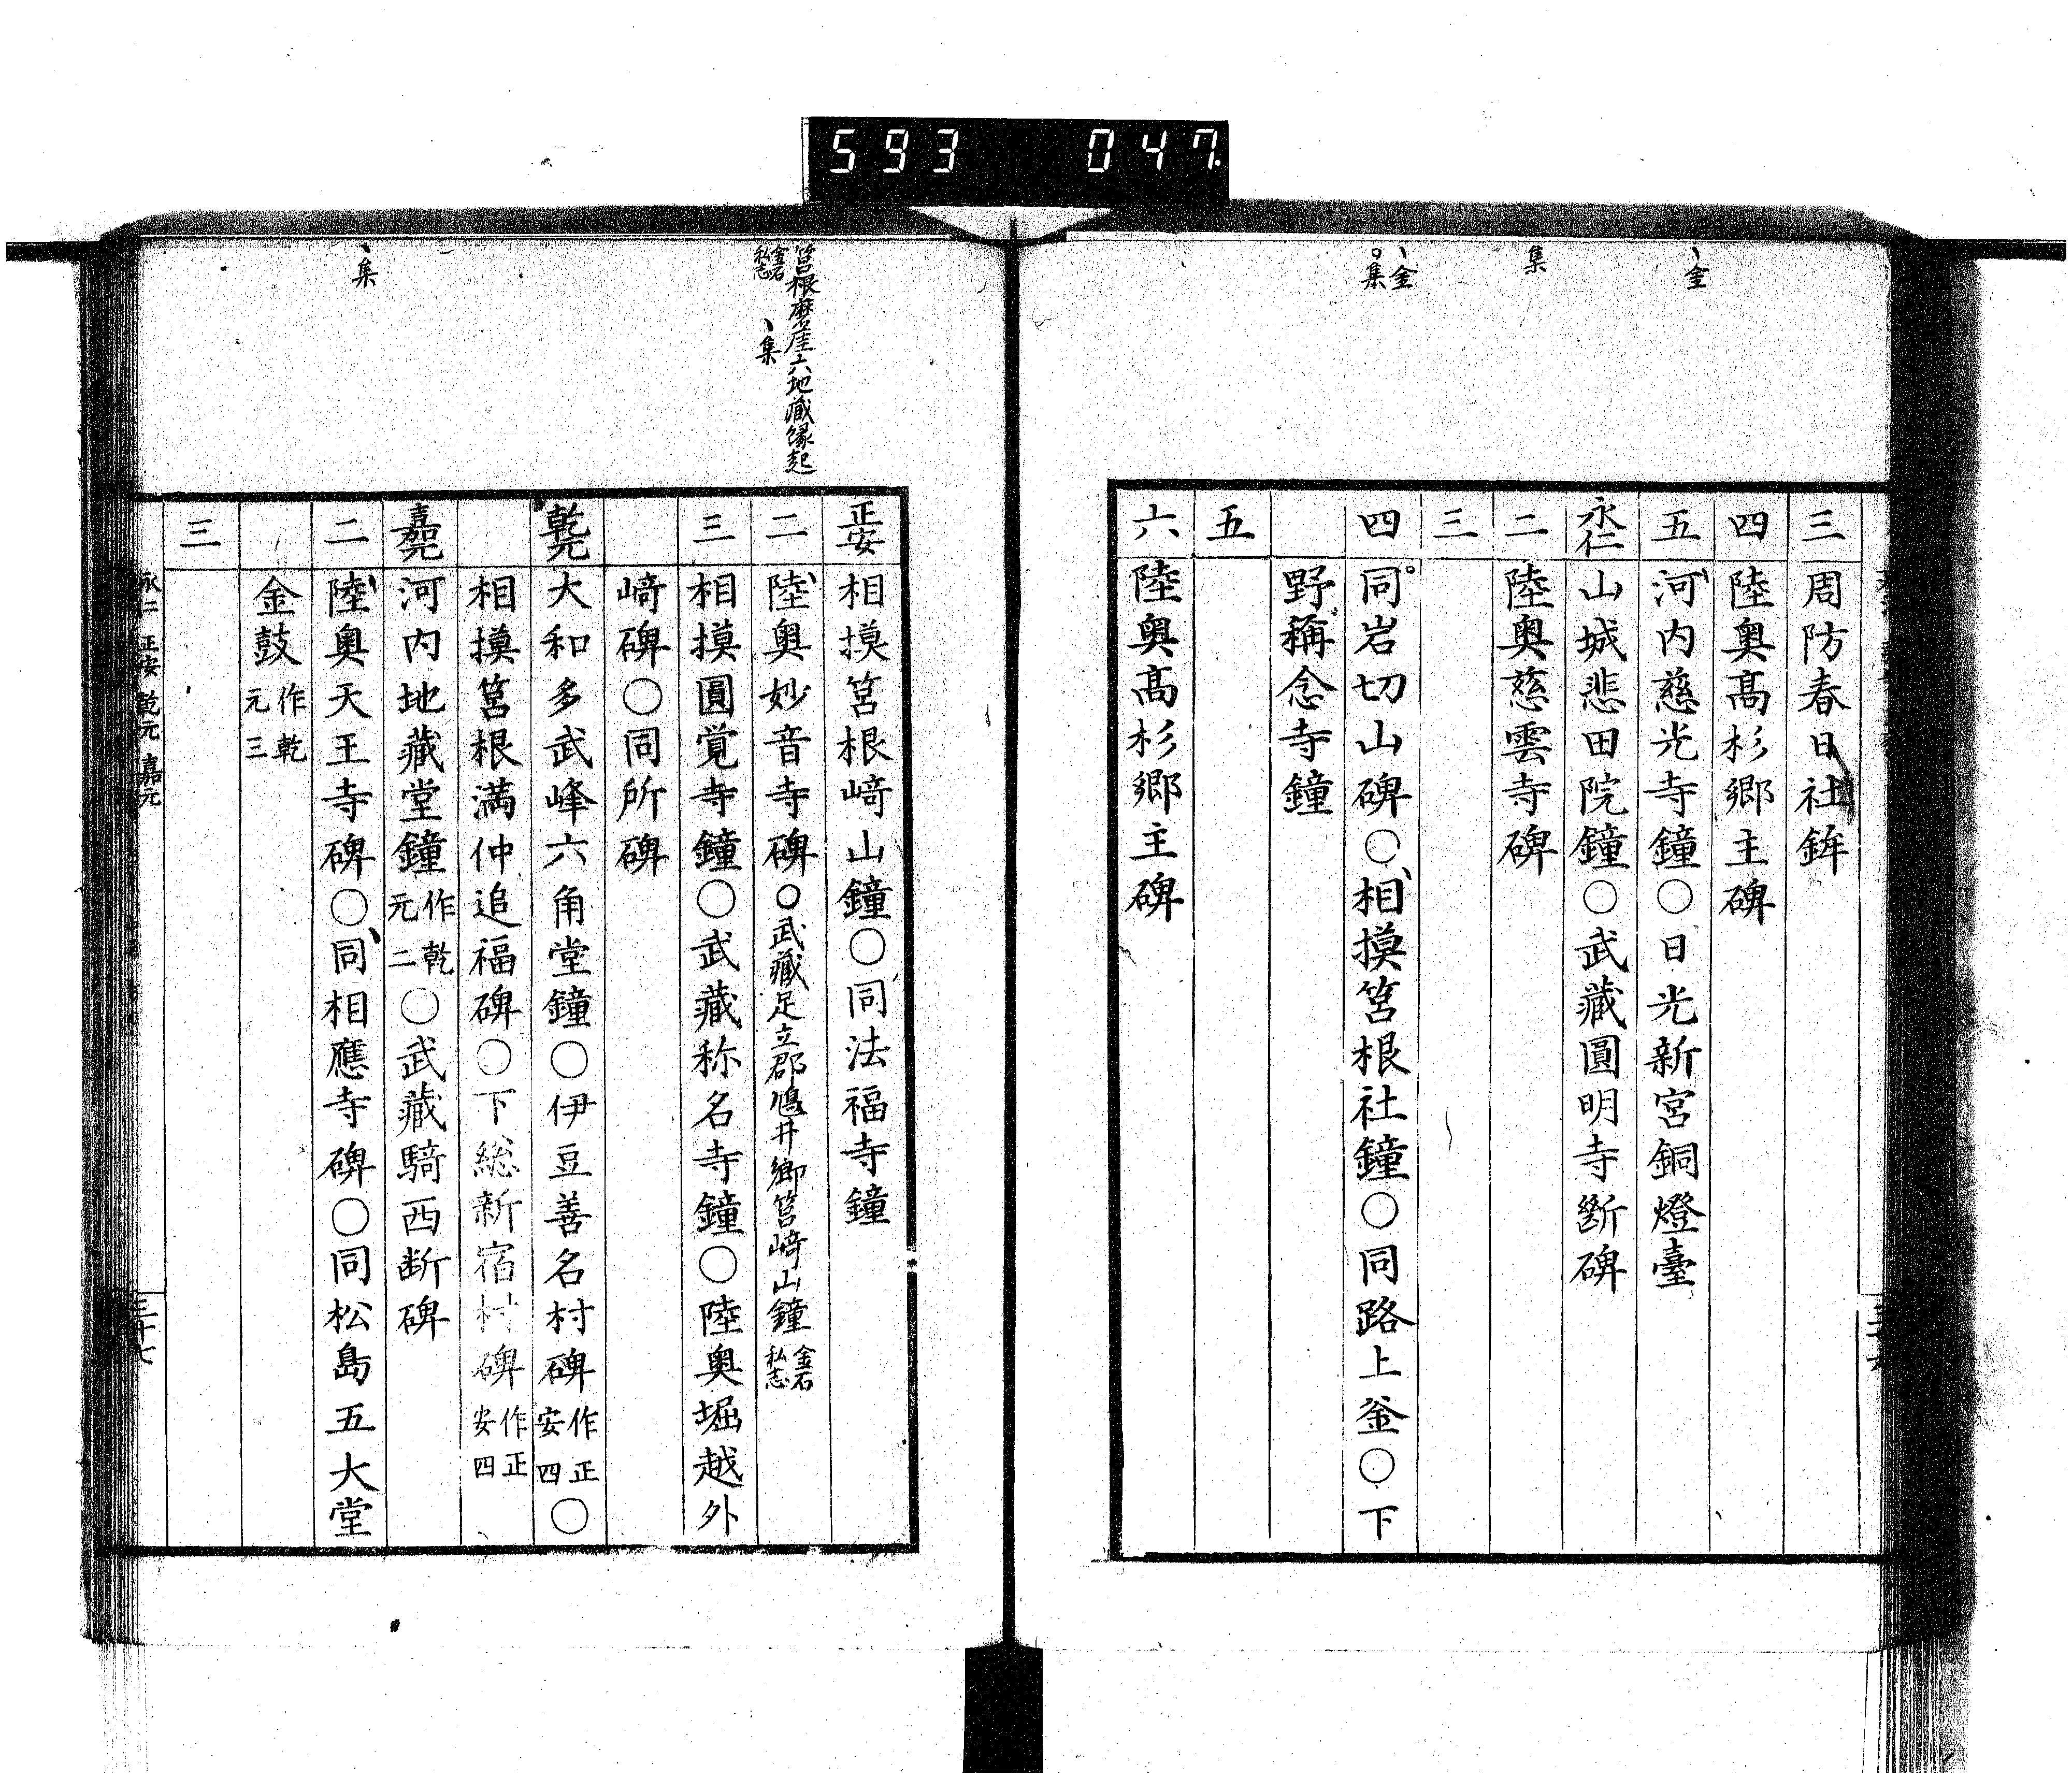 593 047
、金
集
、金
○集
三 周防春日社鉾
四 陸奥髙杉郷主碑
五 河内慈光寺鐘○日光新宮銅燈臺
永仁 山城悲田院鐘○武藏圓明寺斷碑
二 陸奥慈雲寺碑
三
四 同岩切山碑○相摸筥根社鐘○同路上釜○下
野稱念寺鐘
五
六 陸奥髙杉郷主碑
筥根磨崖六地藏縁起
金石
私志
、集
、集
正安 相摸筥根﨑山鐘○同法福寺鐘
二 陸奥妙音寺碑○武藏足立郡鳩井郷筥﨑山鐘 金石私志
三 相摸圓覚寺鐘○武藏称名寺鐘○陸奥堀越外
﨑碑○同所碑
乾元 大和多武峰六角堂鐘○伊豆善名村碑 作正安四○
相摸筥根満仲追福碑○下総新宿村碑 作正安四
嘉元 河内地藏堂鐘 作乾元二○武藏騎西断碑
二 陸奥天王寺碑○同相應寺碑○同松島五大堂
金鼓 作乾元三
三
永仁 正安 乾元 嘉元
三十七